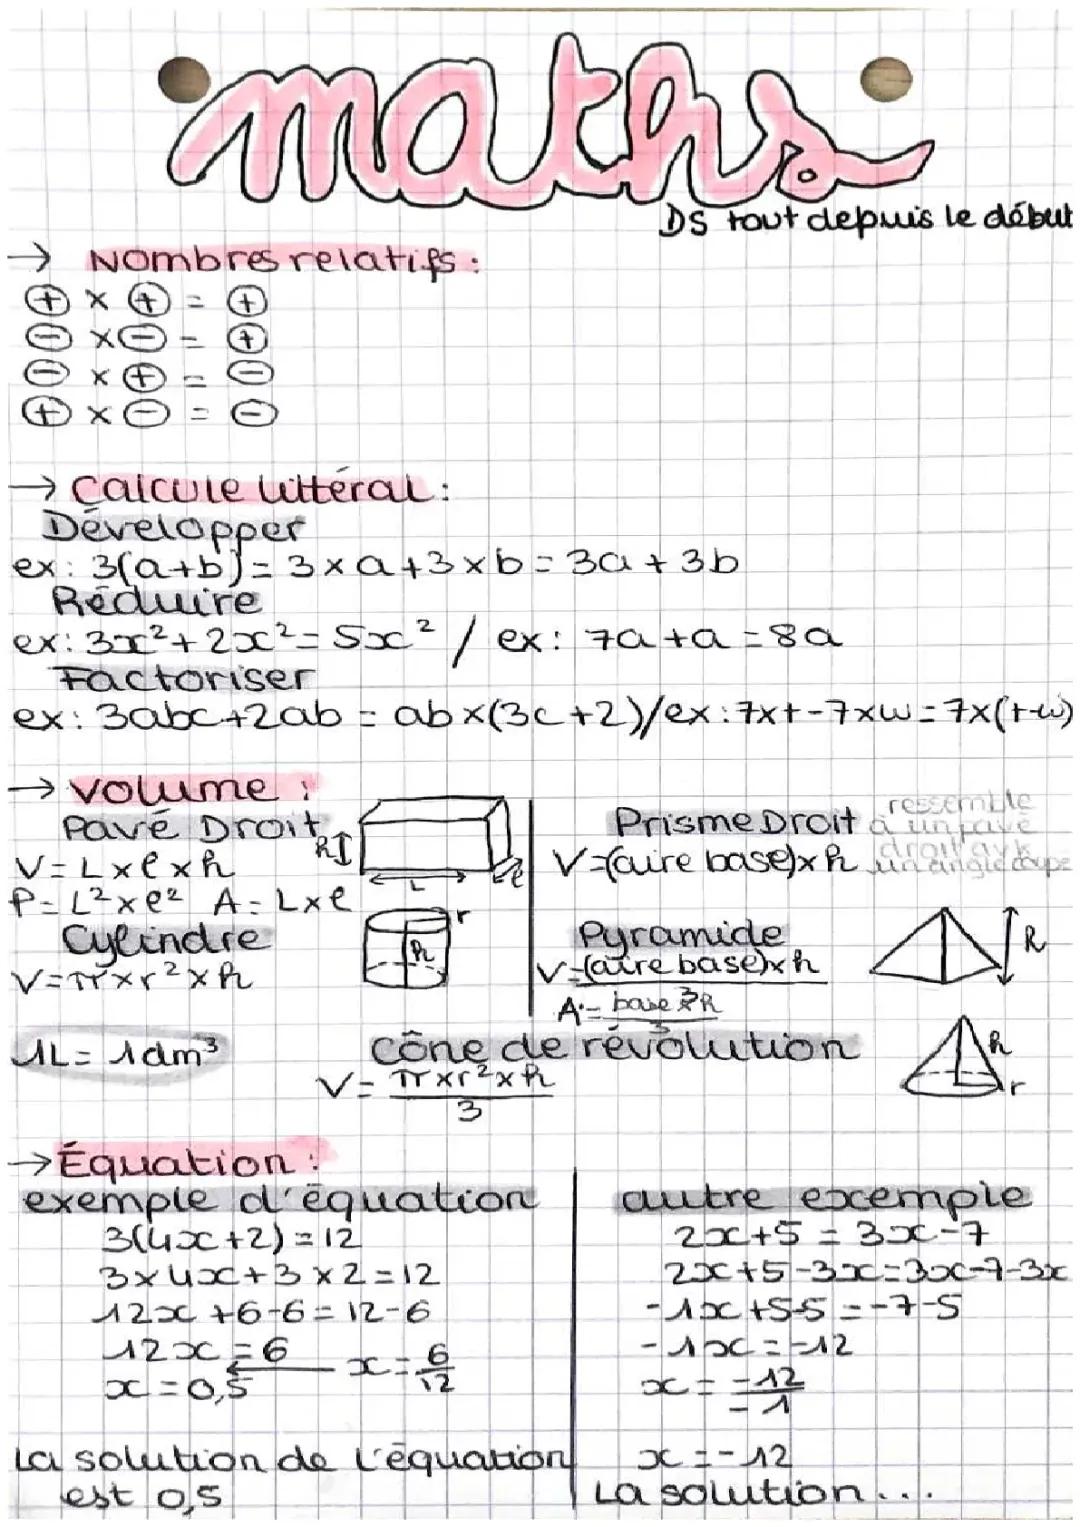 maths
DS tout depuis le début
→ Nombres relatifs :
⊕ × ⊕ = ⊕
⊖ × ⊖ = ⊕
⊖ × ⊕ = ⊖
⊕ × ⊖ = ⊖
→ Calcule littéral :
Développer
ex : 3(a+b) = 3×a+3×b = 3a+3b
Réduire
ex : 3x²+2x² = 5x² / ex : 7a+a = 8a
Factoriser
ex : 3abc+2ab = ab×(3c+2)/ex : 7×t-7×w = 7×(t-w)
→ Volume :
Pavé Droit
h
L
l
V = L×l×h
P = L²×l² A = L×l
Cylindre
r
h
V = π×r²×h
1L = 1dm³
Prisme Droit ressemble
à un pavé
droit avk
un angle coupé
V = (aire base)×h
Pyramide
h
V = (aire base)×h
3
A = base × h
3
cône de révolution
V = π×r²×h
3
h
r
→ Équation :
exemple d'équation
3(4x+2) = 12
3×4x+3×2 = 12
12x+6-6 = 12-6
12x = 6
x = 6
12
x = 0,5
La solution de l'équation
est 0,5
autre exemple
2x+5 = 3x-7
2x+5-3x = 3x-7-3x
-1x+5-5 = -7-5
-1x = -12
x = -12
-1
x = -12
La solution...